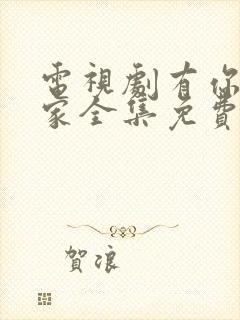 電視劇有你
家全集免費
賀浪